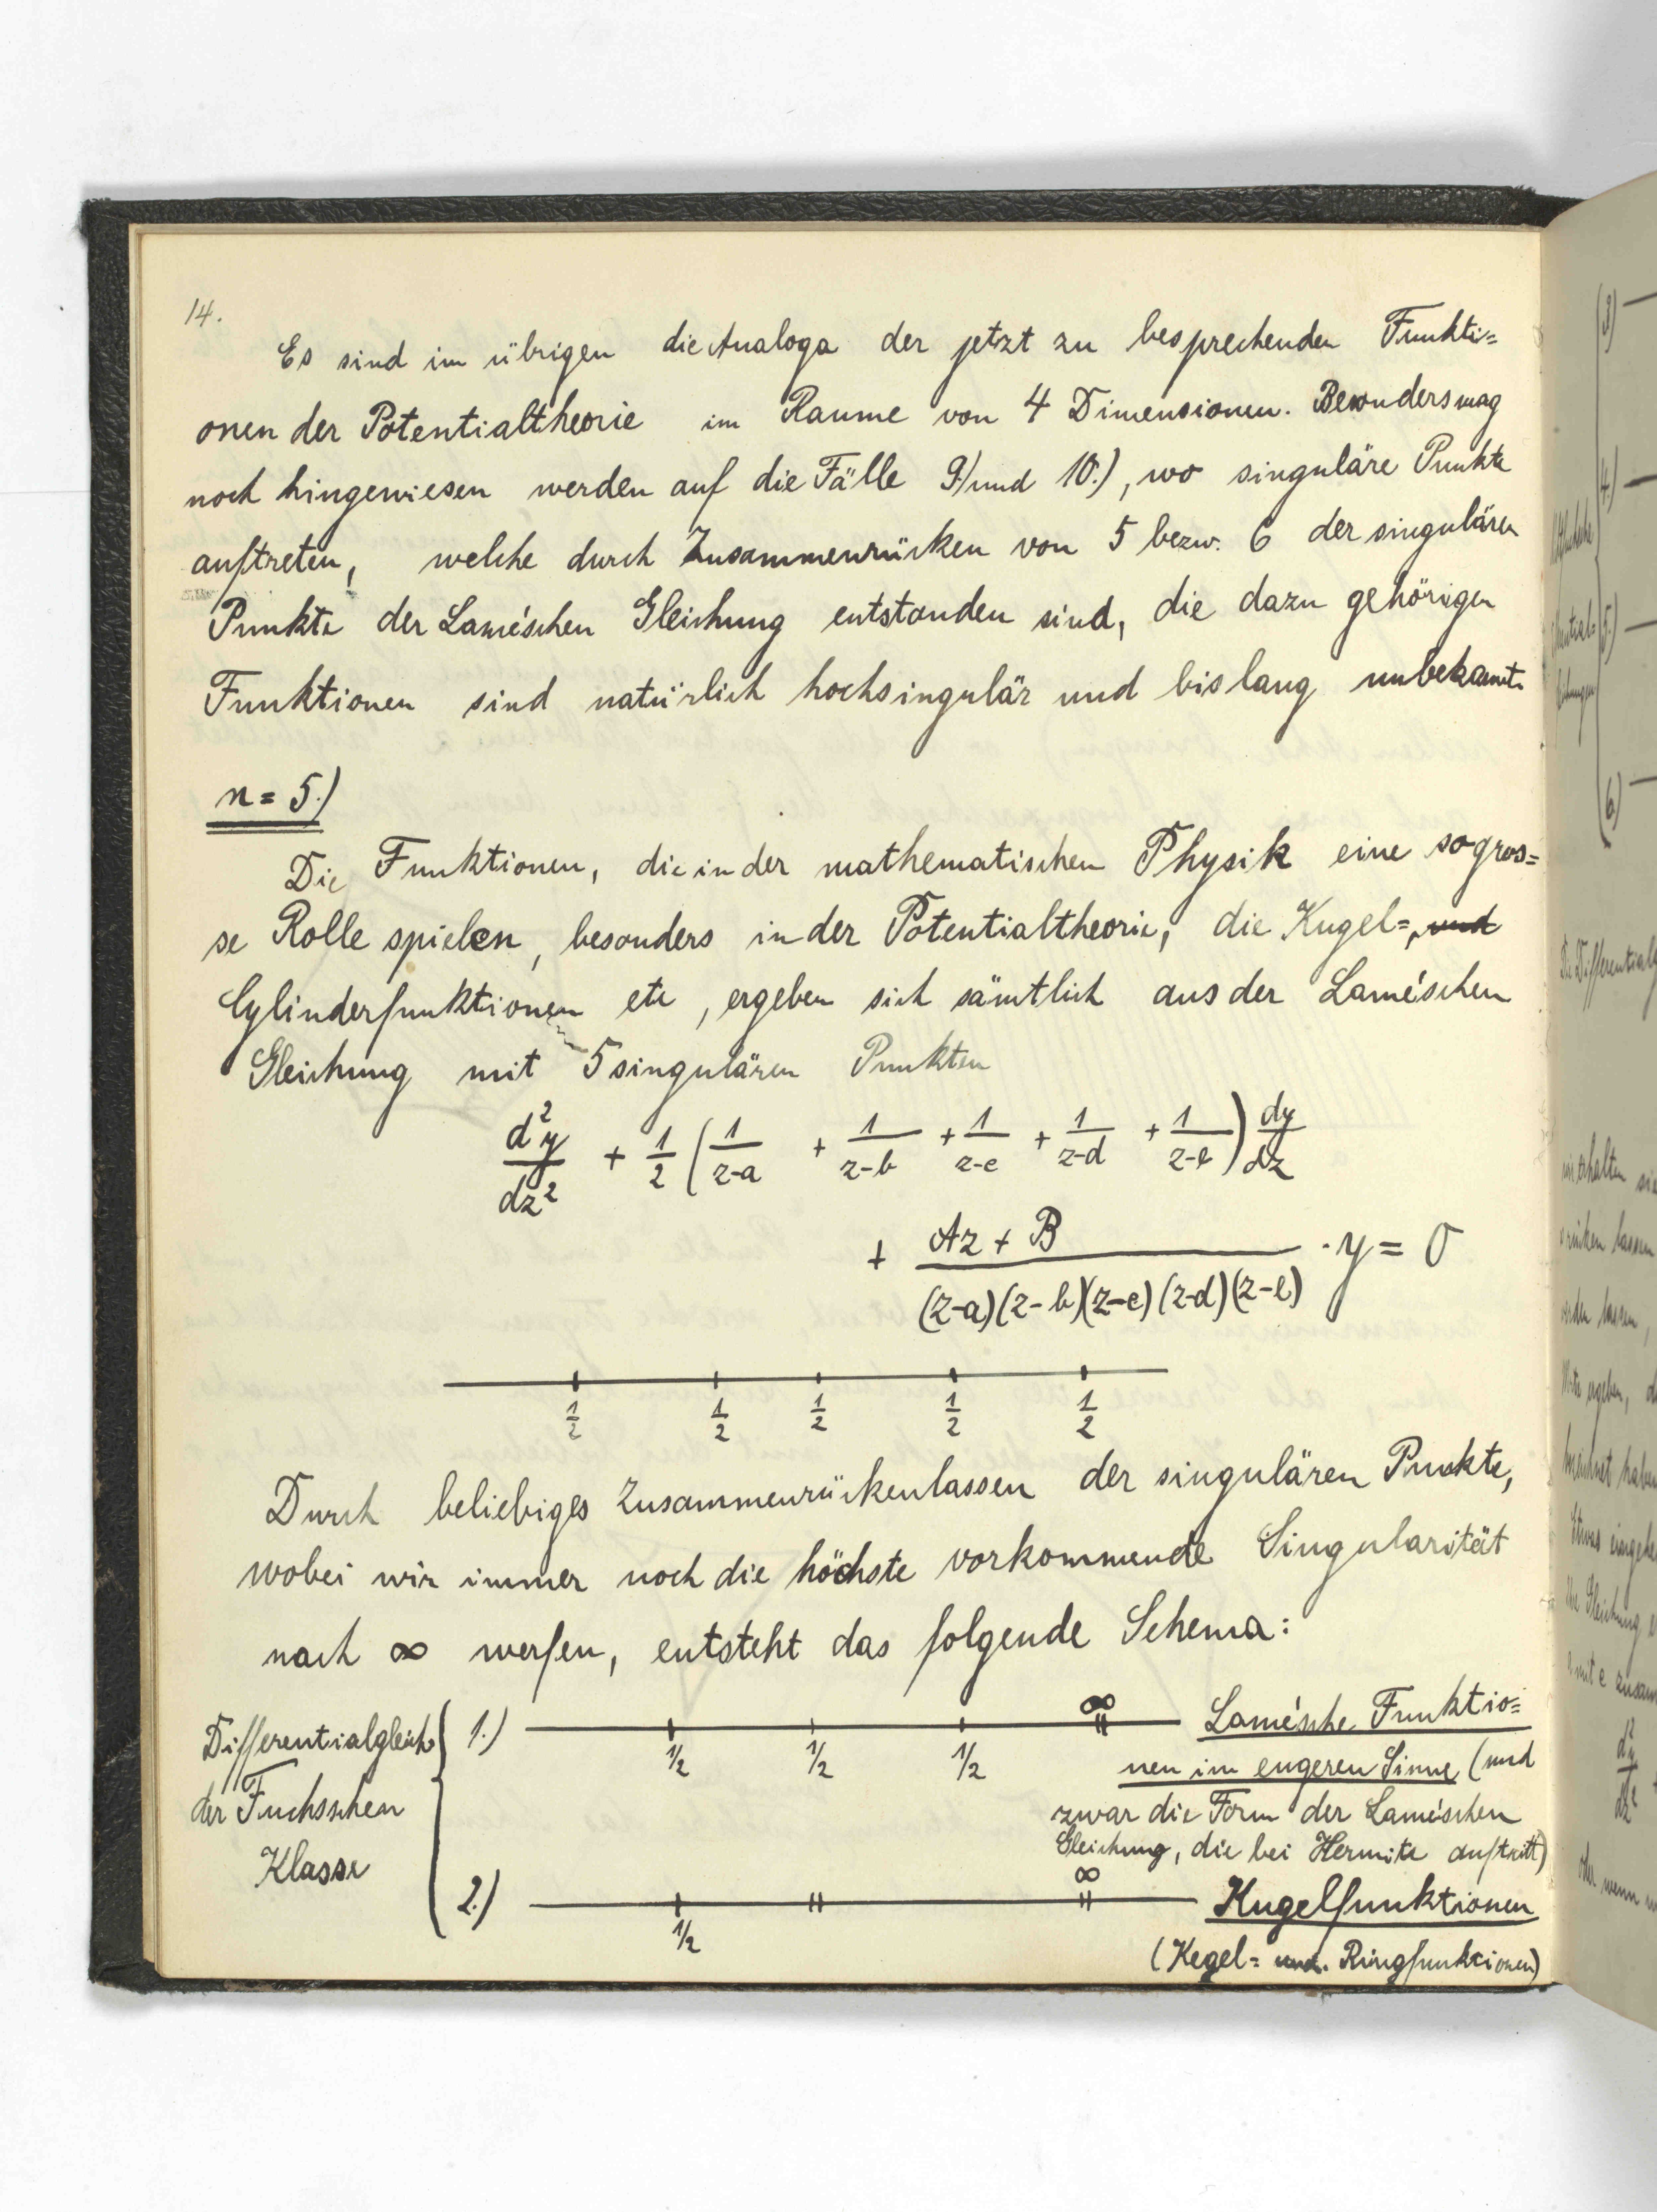 14.
Es sind im übrigen die Analoga der jetzt zu besprechenden Funkti=
onen der Potentialtheorie im Raume von 4 Dimensionen. Besonders mag
noch hingewiesen werden auf die Fälle 9.) und 10.), wo singuläre Punkte
auftreten, welche durch Zusammenrücken von 5 bezw. 6 der singulären
Punkte der Lamé'schen Gleichung entstanden sind, die dazu gehörigen
Funktionen sind natürlich hochsingulär und bislang unbekannt.
n = 5.)
Die Funktionen, die in der mathematischen Physik eine so gros=
se Rolle spielen, besonders in der Potentialtheorie, die Kugel=, und
Cylinderfunktionen etc, ergeben sich sämtlich aus der Lamé'schen
Gleichung mit 5 singulären Punkten
d²y/dz² + 1/2 (1/z-a + 1/z-b + 1/z-c + 1/z-d + 1/z-e) dy/dz
+ Az + B / (z-a)(z-b)(z-c)(z-d)(z-e) · y = 0
1/2 1/2 1/2 1/2 1/2
Durch beliebiges Zusammenrückenlassen der singulären Punkte,
wobei wir immer noch die höchste vorkommende Singularität
nach ∞ werfen, entsteht das folgende Schema:
Differentialgleich
der Fuchsschen
Klasse
1.) ∞ Lamé'sche Funktio=
1/2 1/2 1/2 nen im engeren Sinne (und
zwar die Form der Lamé'schen
Gleichung, die bei Hermite auftritt)
2.) ∞ Kugelfunktionen
1/2
(Kegel= und. Ringfunktionen)
3)
4.)
5.)
6)
Die Differentialg